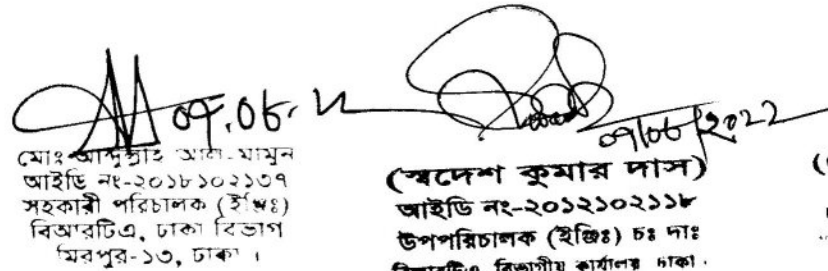 ০৭.০৬.২২
মোঃ আব্দুল্লাহ আল-মামুন
আইডি নং-২০১৮১০২১৩৭
সহকারী পরিচালক (ইঞ্জিঃ)
বিআরটিএ, ঢাকা বিভাগ
মিরপুর-১৩, ঢাকা ।
০৭/০৬/২০২২
(স্বদেশ কুমার দাস)
আইডি নং-২০১২১০২১১৮
উপপরিচালক (ইঞ্জিঃ) চঃ দাঃ
বিআরটিএ, বিভাগীয় কার্যালয় ঢাকা।